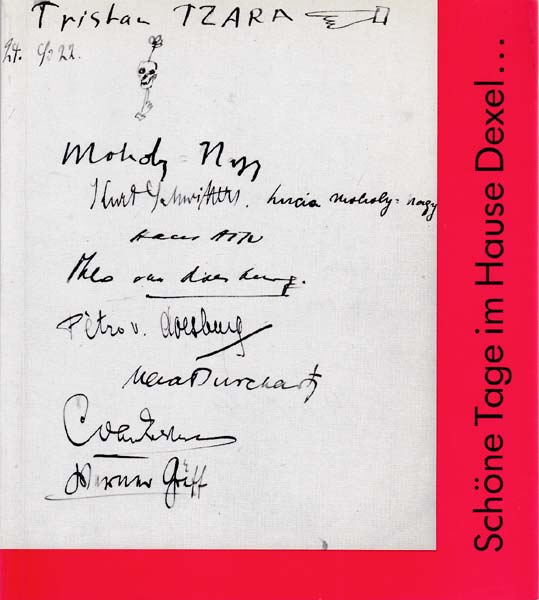 Tristan TZARA
24. 9 22.
Moholy=Nagy
Kurt Schwitters. Lucia Moholy=Nagy
Hans Arp
Theo van doesburg.
Pétro v. doesburg
Max Burchartz
C van Eesteren
Werner Gräff
Schöne Tage im Hause Dexel...